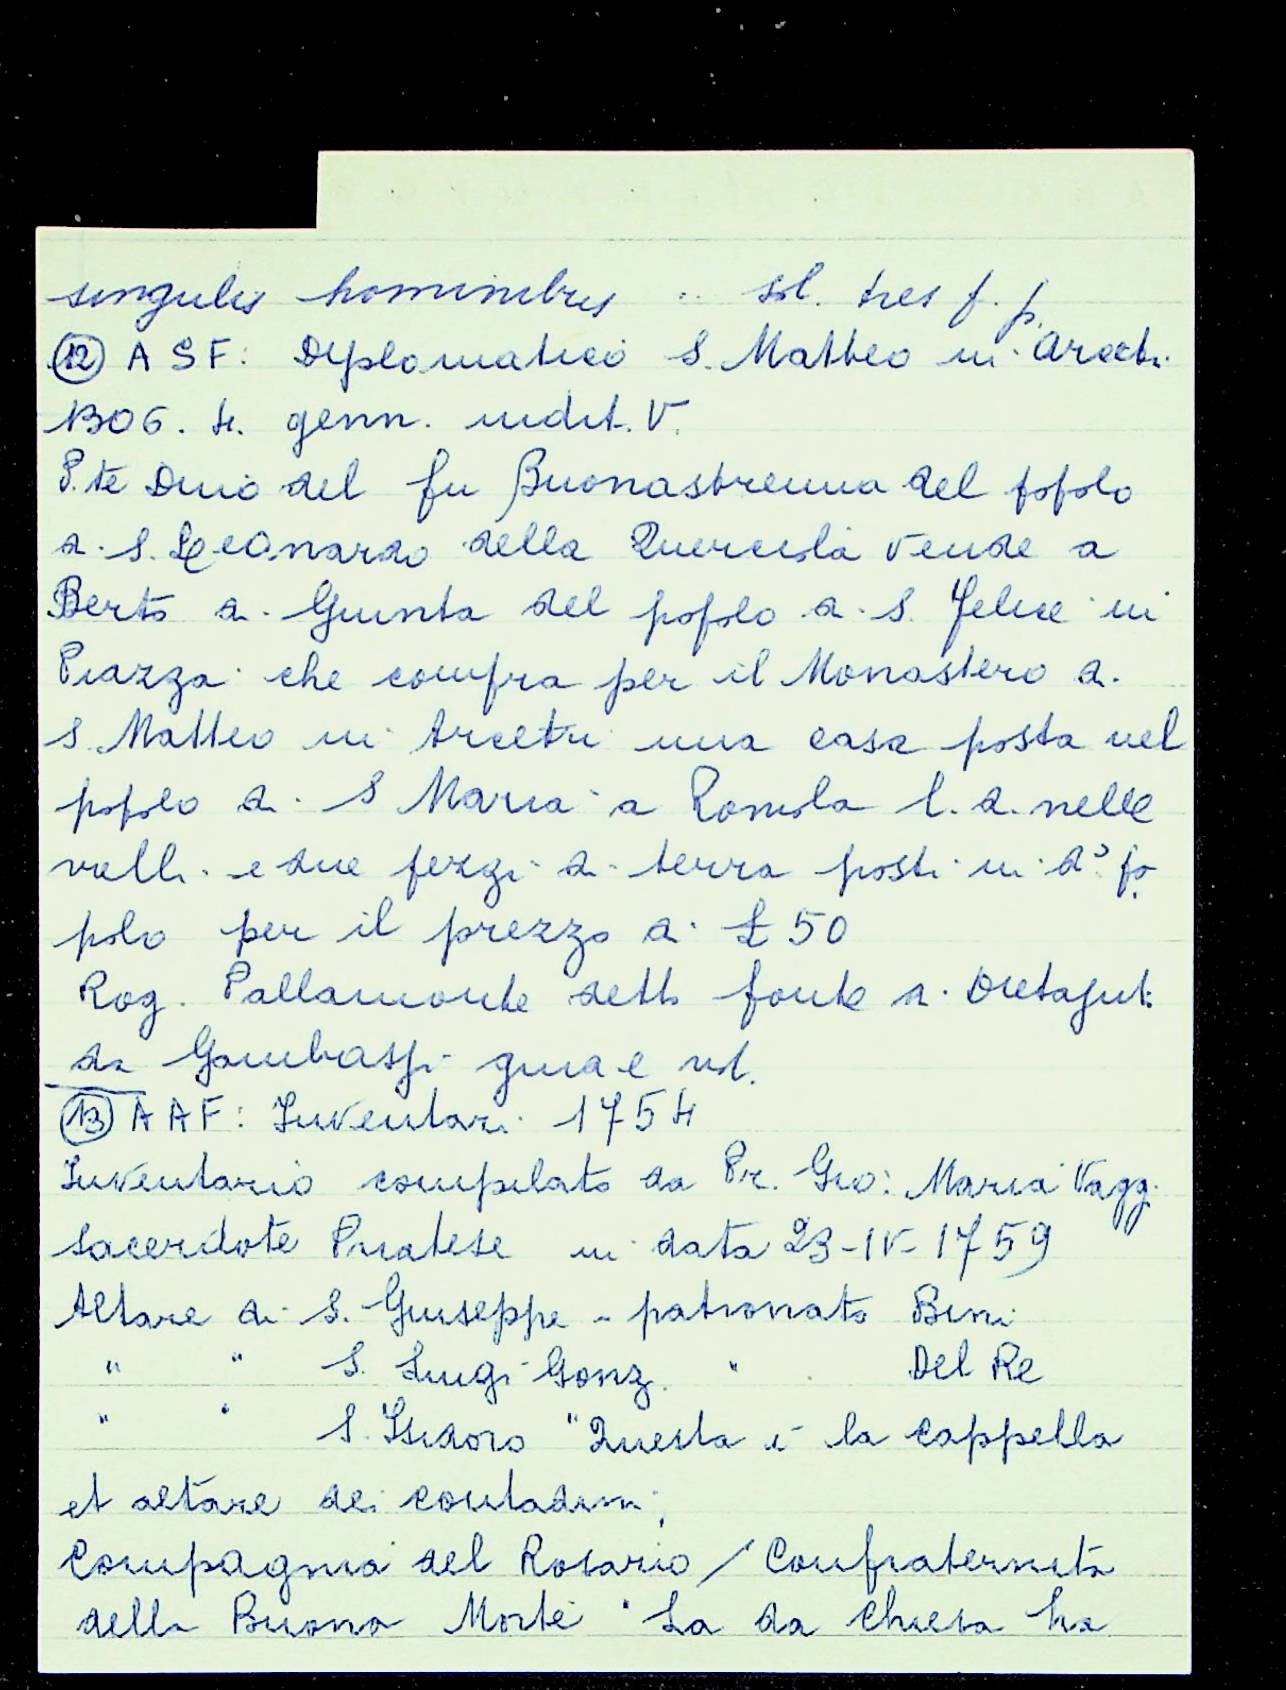 singulis hominibus .. sol. tres f. p.
(12) ASF: Diplomatico S. Matteo in Arcetri
1306. 4. genn. indit. V.
P.te Duio del fu Buonastrenna del popolo
di S. Leonardo della Querciola vende a
Berto di Giunta del popolo di S. Felice in
Piazza che compra per il Monastero di
S. Matteo in Arcetri una casa posta nel
popolo di S Maria a Romola l. d. nelle
valli e due pezzi di terra posti in d.º po
polo per il prezzo di £ 50
Rog. Pallamonte detto fonte di
da Gambassi giud. e not.
(13) AAF: Inventari 1754
Inventario compilato da Pr. Gio: Maria Vagg.
sacerdote Pratese in data 23-IV-1759
Altare di S. Giuseppe - patronato Bini
" " S. Luigi Gonz. " Del Re
" " S. Isidoro "Questa è la cappella
et altare dei contadini,
Compagnia del Rosario / Confraternita
della Buona Morte " La da chiesa ha